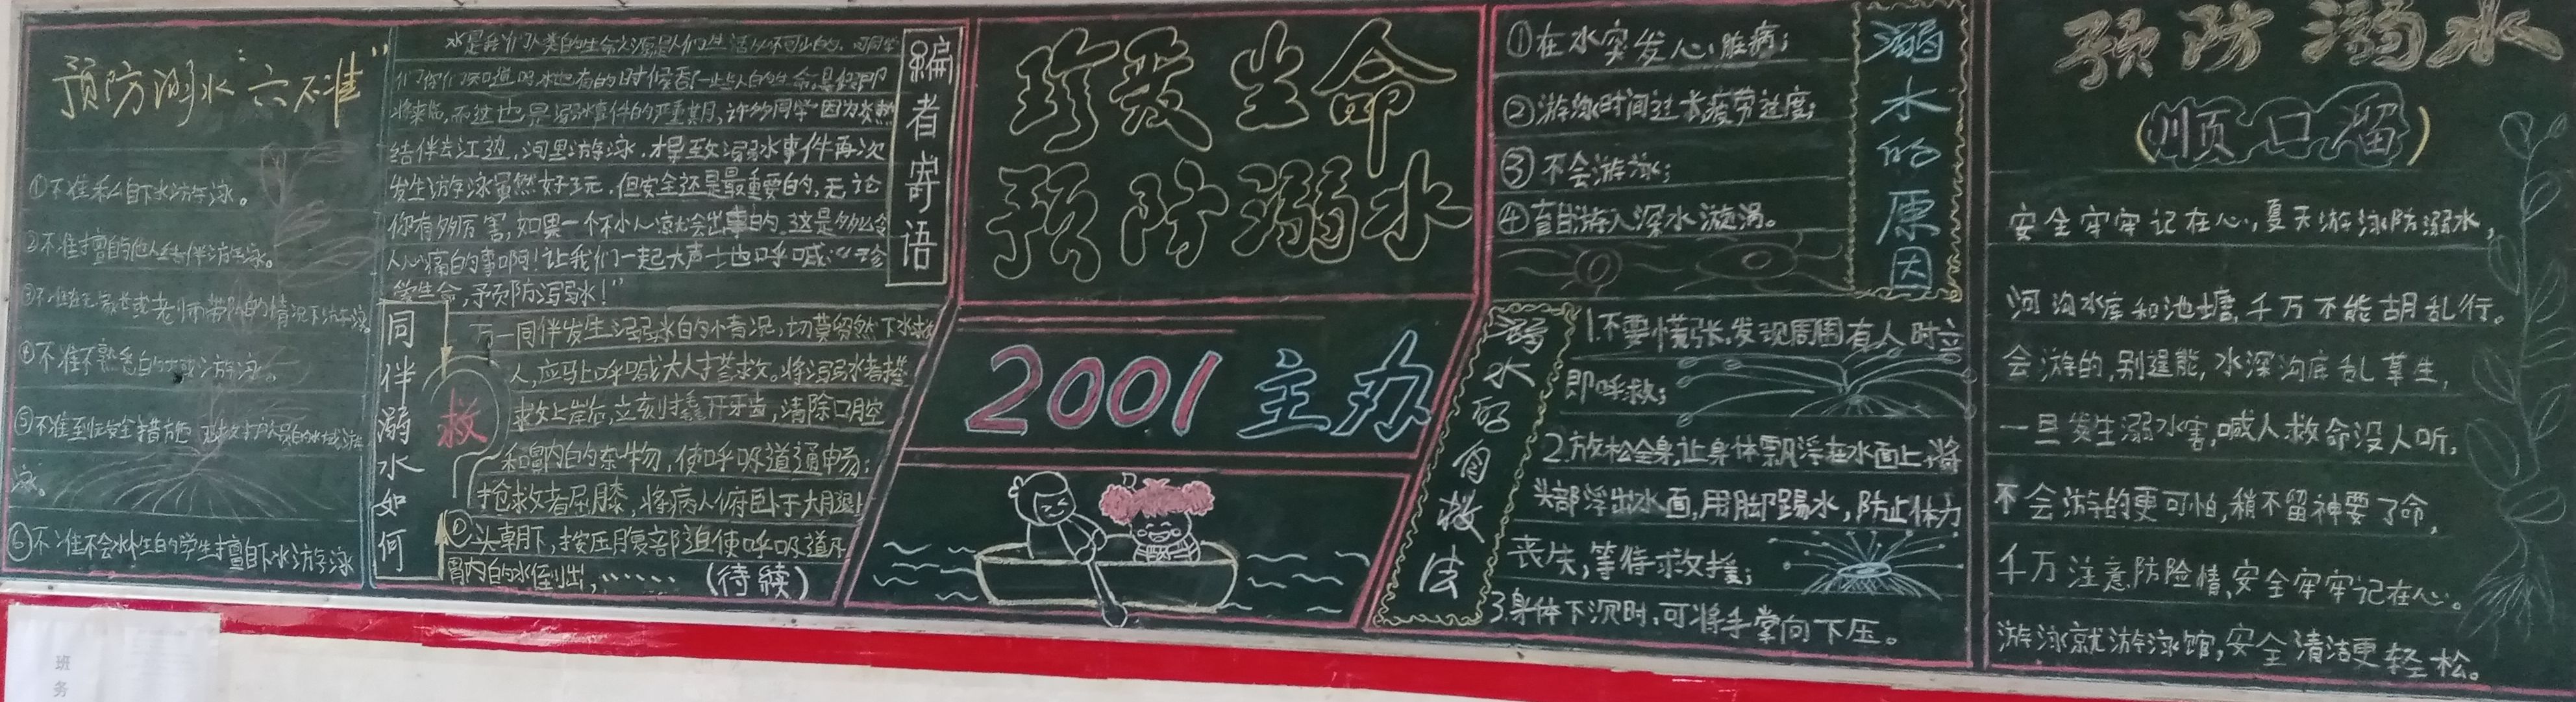 预防溺水“六不准”
①不准私自下水游泳。
②不准擅自与他人结伴游泳。
③不准在无家长或老师带队的情况下游泳。
④不准不熟悉的水域游泳。
⑤不准到无安全措施 无救护人员的水域游
泳。
⑥不准不会水性的学生擅自下水游泳
编者寄语
水是我们人类的生命之源是人们生活必不可少的，可同学
们你们知道吗水也有的时候
将来临，而这也是溺水事件的严重期，许多同学因为炎热
结伴去江边，河里游泳，才导致溺水事件再次
发生游泳虽然好玩，但安全还是最重要的，无论
你有多厉害，如果一个不小心就会出事的，这是多么令
人心痛的事啊！让我们一起大声地呼喊：“珍
爱生命，预防溺水！”
同伴溺水如何
救
万一同伴发生溺水的情况，切莫贸然下水救
人，应马上呼喊大人搭救。将溺水者搭
救上岸后，立刻撬开牙齿，清除口腔
和鼻内的杂物，使呼吸道通畅；
抢救者屈膝，将病人俯卧于大腿上
头朝下，按压腹部迫使呼吸道及
胃内的水倒出，……
(待续)
珍爱生命
预防溺水
2001主办
溺水的原因
①在水突发心脏病；
②游泳时间过长疲劳过度；
③不会游泳；
④盲目游入深水漩涡。
溺水的自救法
1.不要慌张，发现周围有人时立
即呼救；
2.放松全身，让身体飘浮在水面上，将
头部浮出水面，用脚踢水，防止体力
丧失，等待救援；
3.身体下沉时，可将手掌向下压。
预防溺水
(顺口溜)
安全牢牢记在心，夏天游泳防溺水，
河沟水库和池塘，千万不能胡乱行。
会游的，别逞能，水深沟底乱草生，
一旦发生溺水害，喊人救命没人听，
不会游的更可怕，稍不留神要了命，
千万注意防险情，安全牢牢记在心。
游泳就游泳馆，安全清洁更轻松。
班
务